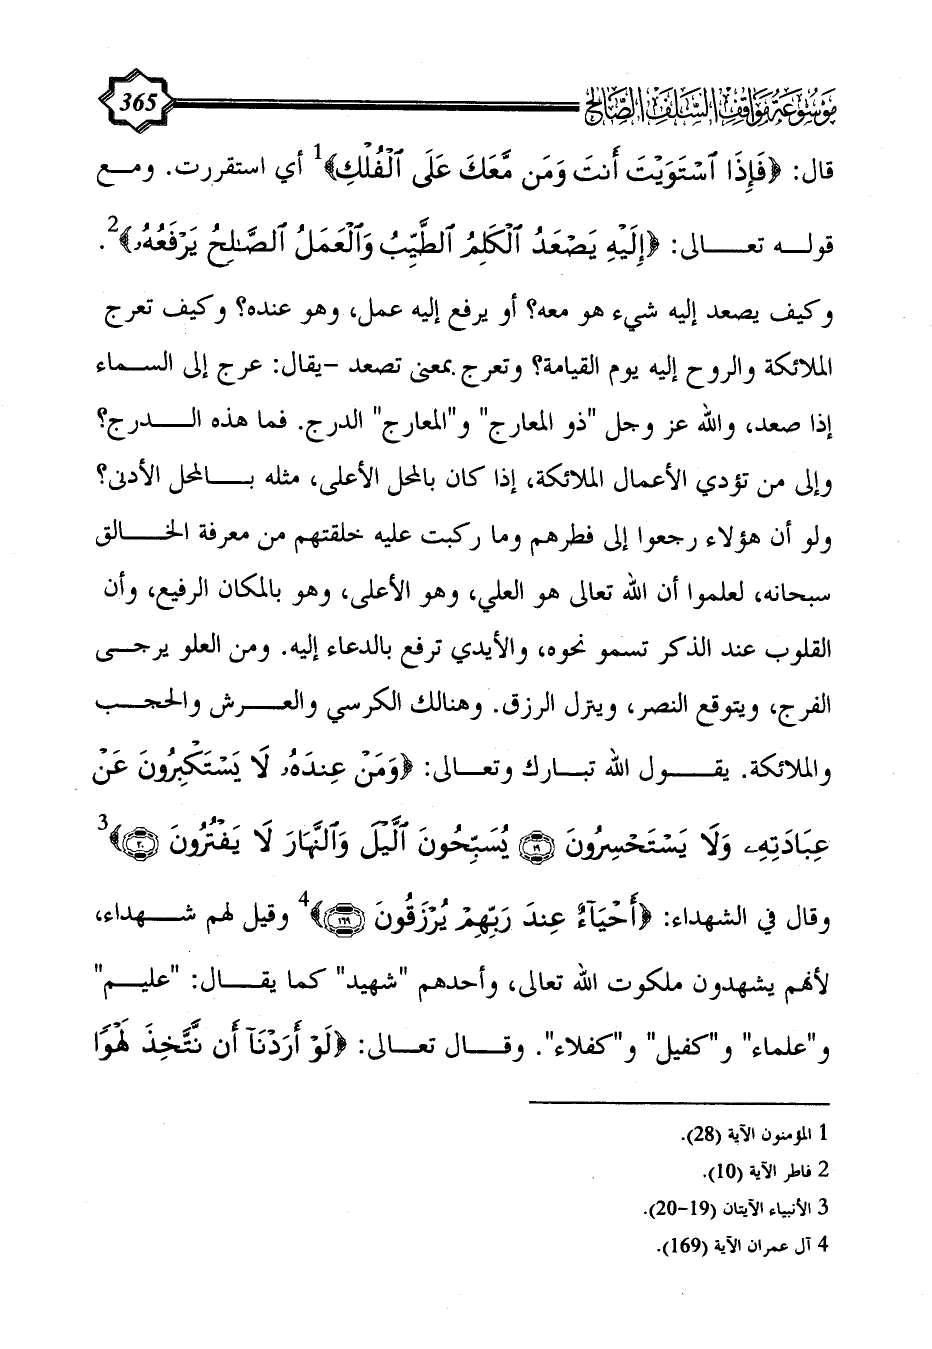 موسوعة مواقف السلف الصالح
365
قال: ﴿فَإِذَا ٱسْتَوَيْتَ أَنتَ وَمَن مَّعَكَ عَلَى ٱلْفُلْكِ﴾1 أي استقررت. ومـع
قولـه تعـــالى: ﴿إِلَيْهِ يَصْعَدُ ٱلْكَلِمُ ٱلطَّيِّبُ وَٱلْعَمَلُ ٱلصَّـٰلِحُ يَرْفَعُهُۥ﴾2.
وكيف يصعد إليه شيء هو معه؟ أو يرفع إليه عمل، وهو عنده؟ وكيف تعرج
الملائكة والروح إليه يوم القيامة؟ وتعرج بمعنى تصعد -يقال: عرج إلى الســماء
إذا صعد، والله عز وجل "ذو المعارج" و"المعارج" الدرج. فما هذه الــدرج؟
وإلى من تؤدي الأعمال الملائكة، إذا كان بالمحل الأعلى، مثله بـــالمحل الأدنى؟
ولو أن هؤلاء رجعوا إلى فطرهم وما ركبت عليه خلقتهم من معرفة الخـــالق
سبحانه، لعلموا أن الله تعالى هو العلي، وهو الأعلى، وهو بالمكان الرفيع، وأن
القلوب عند الذكر تسمو نحوه، والأيدي ترفع بالدعاء إليه. ومن العلو يرجــى
الفرج، ويتوقع النصر، وينزل الرزق. وهنالك الكرسي والعــرش والحجــب
والملائكة. يقـــول الله تبـــارك وتعـــالى: ﴿وَمَنْ عِندَهُۥ لَا يَسْتَكْبِرُونَ عَنْ
عِبَادَتِهِۦ وَلَا يَسْتَحْسِرُونَ ۝١٩ يُسَبِّحُونَ ٱلَّيْلَ وَٱلنَّهَارَ لَا يَفْتُرُونَ ۝٢٠﴾3
وقال في الشهداء: ﴿أَحْيَآءٌ عِندَ رَبِّهِمْ يُرْزَقُونَ ۝١٦٩﴾4 وقيل لهم شـــهداء،
لأنهم يشهدون ملكوت الله تعالى، وأحدهم "شهيد" كما يقـــال: "عليـــم"
و"علماء" و"كفيل" و"كفلاء". وقـــال تعـــالى: ﴿لَوْ أَرَدْنَآ أَن نَّتَّخِذَ لَهْوًا
1 المؤمنون الآية (28).
2 فاطر الآية (10).
3 الأنبياء الآيتان (19-20).
4 آل عمران الآية (169).